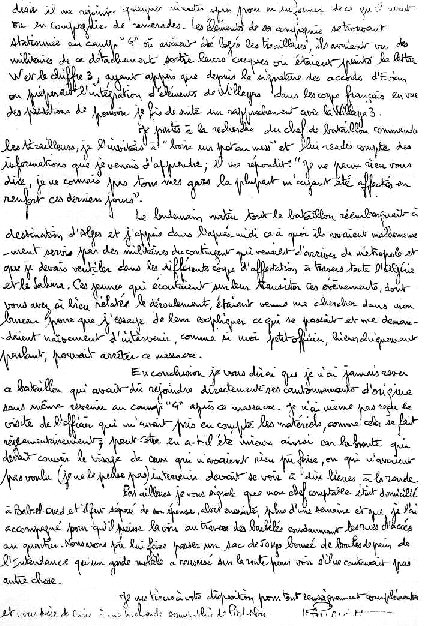 desir il me rejoint quelques minutes après pour m'informer de ce qu'il avait
vu en compagnie de camarades. Les éléments de sa compagnie se trouvant
stationnés au camp "G" où avaient été logés les tirailleurs, ils avaient vu des
militaires de ce détachement sortir leurs casques où étaient peints la lettre
W et le chiffre 3, ayant appris que depuis la signature des accords d'Evian
on préparait l'intégration d'éléments de Willayas dans les corps français en vue
des passations de pouvoir je fis de suite un rapprochement avec la Willaya 3.
Je partis à la recherche du chef de bataillon commandant
les tirailleurs, je l'invitais à "boire un pot au mess" et lui rendis compte des
informations que je venais d'apprendre; il me répondit: "Je ne peux rien vous
dire, je ne connais pas tous mes gars la plupart m'ayant été affectés en
renfort ces derniers jours".
Le lendemain matin tout le bataillon réembarquait à
destination d'Alger et j'appris dans l'après-midi ce à quoi ils avaient malheureuse
-ment servis par des militaires du contingent qui venaient d'arriver de métropole et
que je devais ventiler dans les différents corps d'affectation à travers toute l'Algérie
et le Sahara. Ces jeunes qui écoutaient sur leur transistor ces événements, dont
vous avez si bien relatés le déroulement, étaient venus me chercher dans mon
bureau pour que j'essaye de leur expliquer ce qui se passait et me deman-
-daient naïvement d'intervenir, comme si moi petit officier, hiérarchiquement
parlant, pouvait arrêter ce massacre.
En conclusion je vous dirai que je n'ai jamais revu
ce bataillon qui avait dû rejoindre directement ses cantonnements d'origine
sans même revenir au camp "G" après ce massacre. Je n'ai même pas reçu la
visite de l'officier qui m'avait pris en compte les matériels, comme cela se fait
réglementairement; peut être en a-t-il été mieux ainsi car la honte qui
devait couvrir le visage de ceux qui n'avaient rien pu faire, ou qui n'avaient
pas voulu (je ne le pense pas) intervenir devait se voir à dix lieues à la ronde.
Par ailleurs je vous signale que mon chef comptable était domicilié
à Bab el Oued et il fut séparé de son épouse, alors enceinte, plus d'une semaine et que je l'ai
accompagné pour qu'il puisse la voir au travers des barbelés condamnant les rues d'accès
au quartier. Nous avons pu lui faire passer un sac de corps bourré de boules de pain de
l'Intendance qu'un garde mobile a renversé sur la route pour voir s'il ne contenait pas
autre chose.
Je me tiens à votre disposition pour tout renseignement complémentaire
et vous prie de croire à